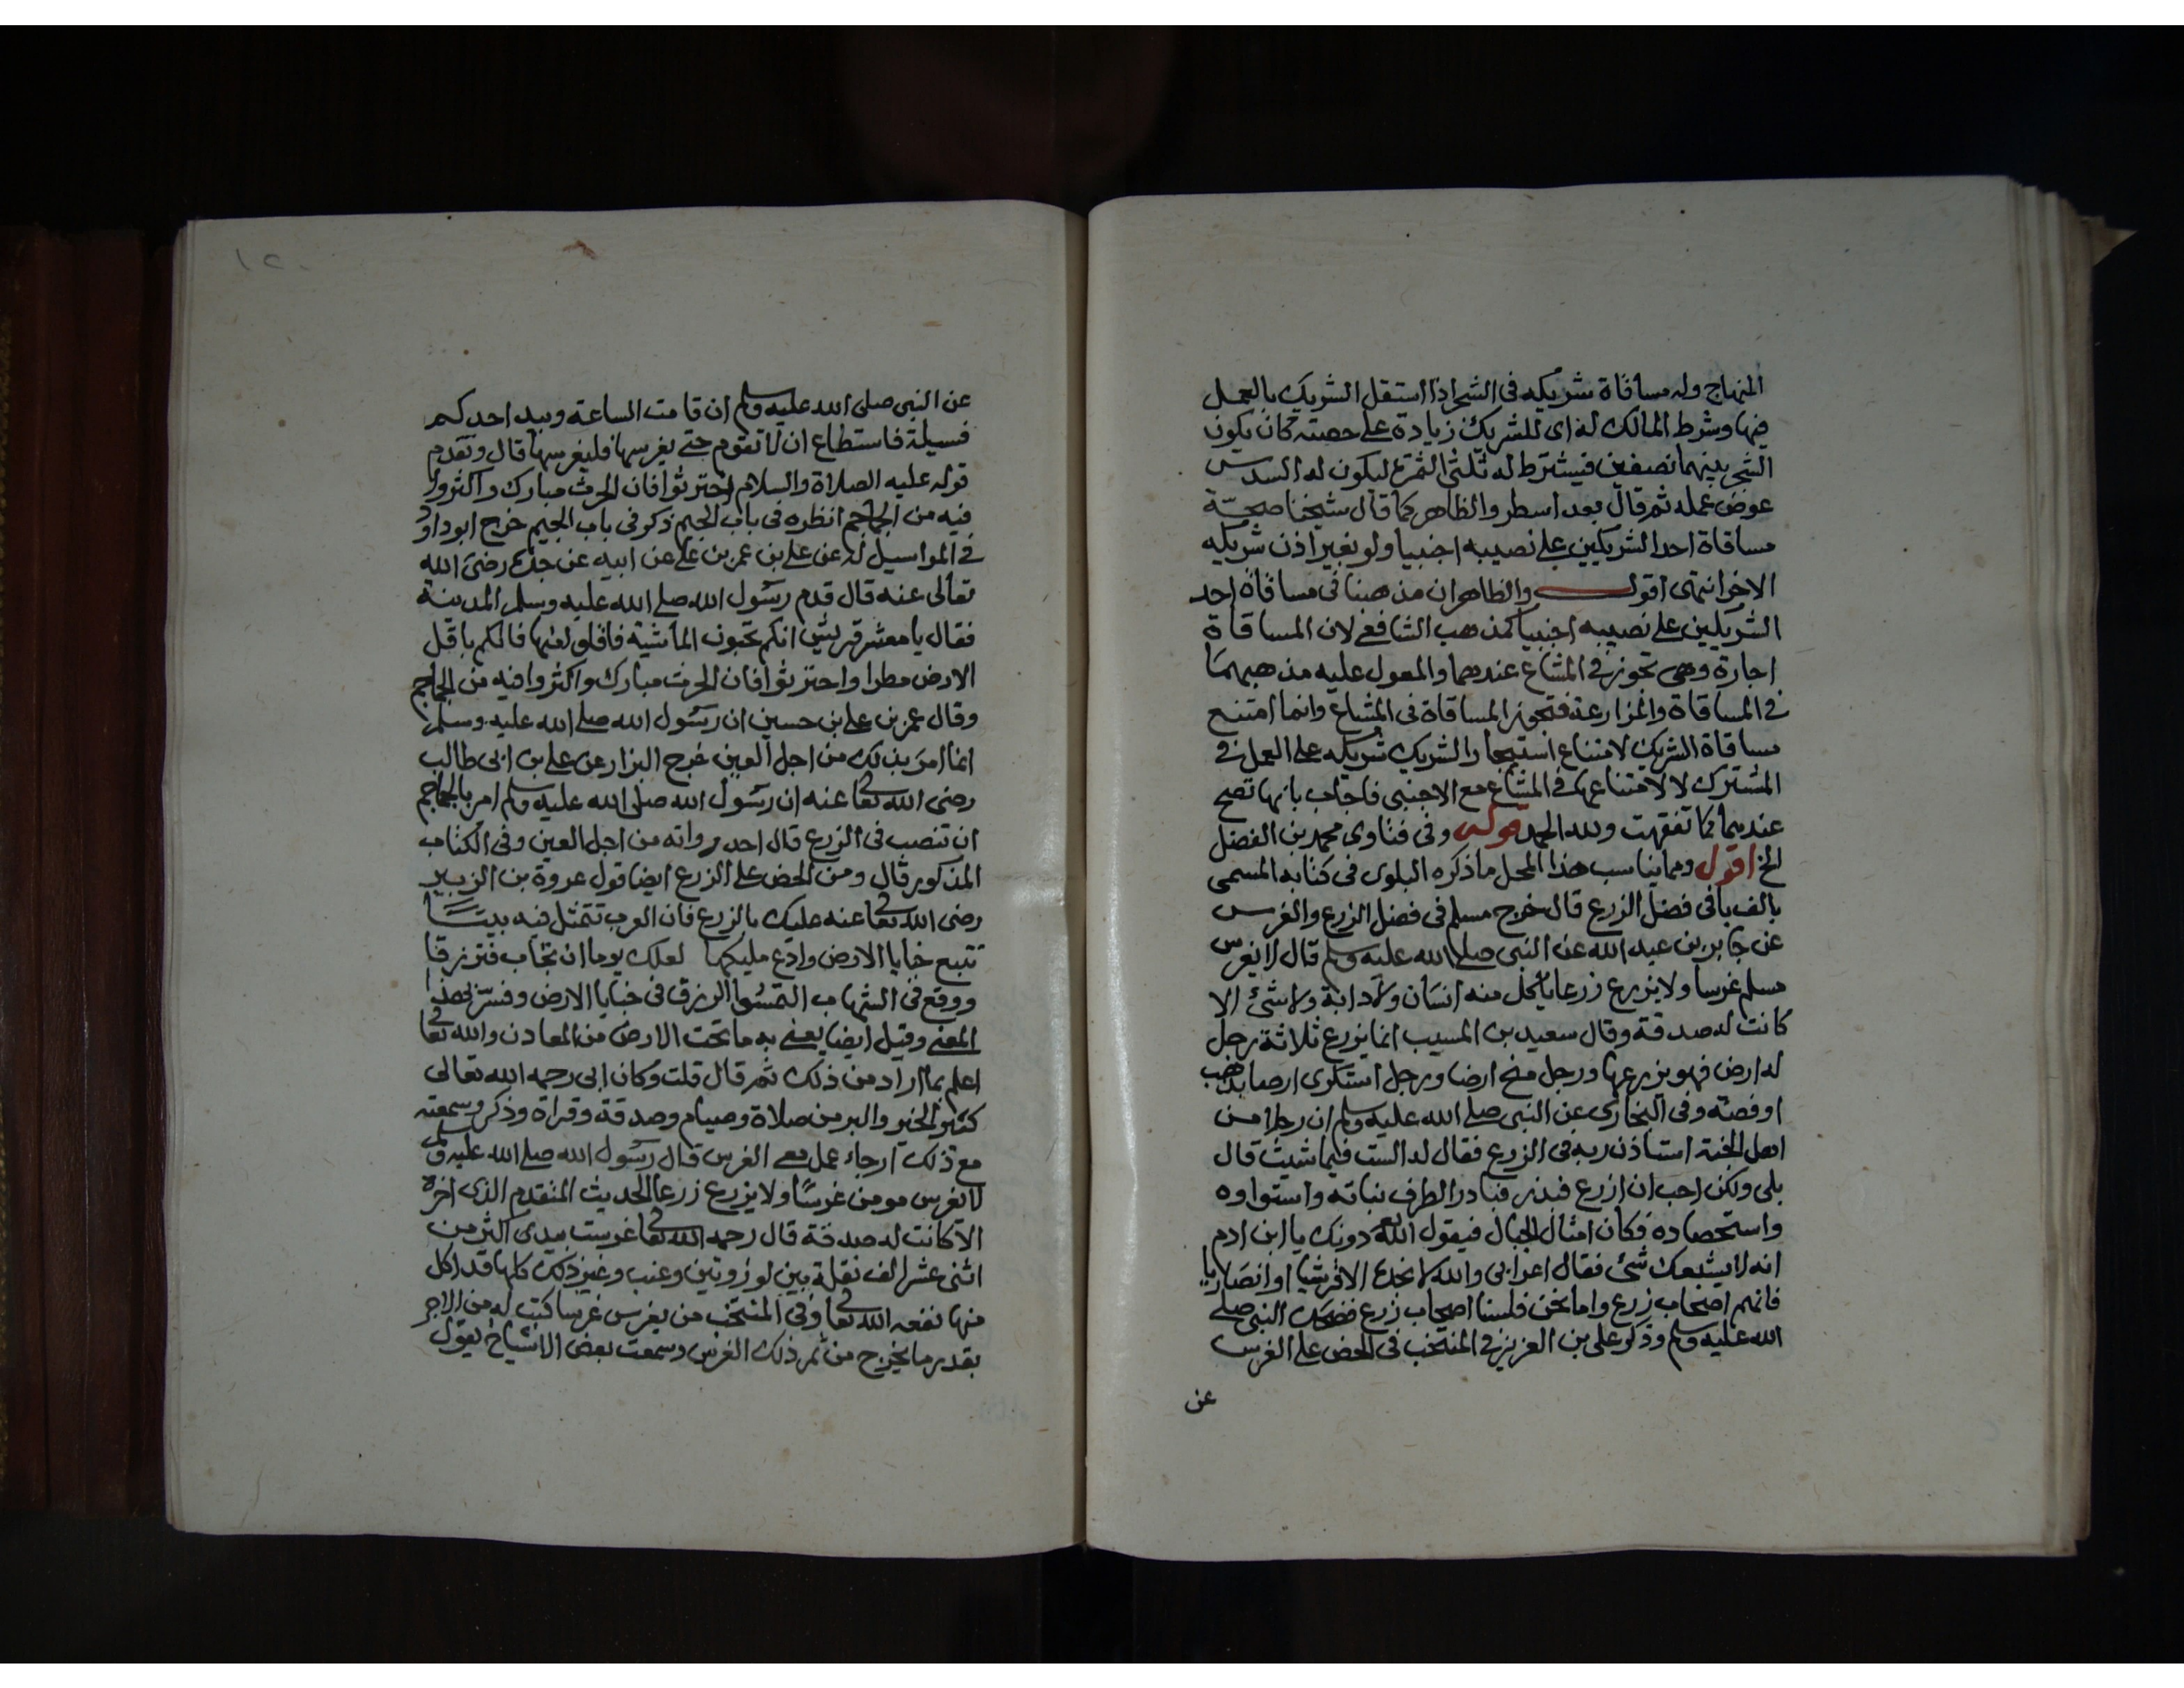 المنهاج وله مساقاة شريكه فى الشجر اذا استقل الشريك بالعمل
فيها وشرط المالك له اى للشريك زيادة على حصته كان يكون
الشجر بينهما نصفين فيشترط له ثلثى الثمرة ليكون له السدس
عوض عمله ثم قال بعد اسطر والظاهر كما قال شيخنا صحة
مساقاة احد الشريكين على نصيبه اجنبيا ولو بغير اذن شريكه
الاخر انتهى اقول والظاهر ان مذهبنا فى مساقاة احد
الشريكين على نصيبه اجنبيا كمذهب الشافعى لان المساقاة
اجارة وهى تجوز فى المشاع عندهما والمعول عليه مذهبهما
فى المساقاة والمزارعة فتجوز المساقاة فى المشاع وانما امتنع
مساقاة الشريك لامتناع استيجار الشريك شريكه على العمل فى
المشترك لا لامتناعها فى المشاع مع الاجنبى فاجاب بانها تصح
عندهما كما تفقهت ولله الحمد قوله وفى فتاوى محمد بن الفضل
الخ اقول ومما يناسب هذا المحل ما ذكره البلوى فى كتابه المسمى
بالف با فى فضل الزرع قال خرج مسلم فى فضل الزرع والغرس
عن جابر بن عبد الله عن النبى صلى الله عليه وسلم قال لا يغرس
مسلم غرسا ولا يزرع زرعا ياكل منه انسان ولا دابة ولا شئ الا
كانت له صدقة وقال سعيد بن المسيب انما يزرع ثلاثة رجل
له ارض فهو يزرعها ورجل منح ارضا ورجل استكرى ارضا بذهب
او فضة وفى البخارى عن النبى صلى الله عليه وسلم ان رجلا من
اهل الجنة استاذن ربه فى الزرع فقال له الست فيما شيت قال
بلى ولكن احب ان ازرع فبذر فبادر الطرف نباته واستواوه
واستحصاده فكان امثال الجبال فيقول الله دونك يا ابن ادم
انه لا يشبعك شئ فقال اعرابى والله لا نجده الا قرشيا او انصاريا
فانهم اصحاب زرع واما نحن فلسنا اصحاب زرع فضحك النبى صلى
الله عليه وسلم وذكر على بن العزيز فى المنتخب فى الحض على الغرس
عن
١٢٠
عن النبى صلى الله عليه وسلم ان قامت الساعة وبيد احدكم
فسيلة فاستطاع ان لا تقوم حتى يغرسها فليغرسها قال وتقدم
قوله عليه الصلاة والسلام احترثوا فان الحرث مبارك واكثروا
فيه من الجماجم انظره فى باب الجيم ذكر فى باب الجيم خرج ابو داود
فى المراسيل له عن على بن عمر بن على عن ابيه عن جده رضى الله
تعالى عنه قال قدم رسول الله صلى الله عليه وسلم المدينة
فقال يا معشر قريش انكم تحبون الماشية فاقلوا منها فانكم باقل
الارض مطرا واحترثوا فان الحرث مبارك واكثروا فيه من الجماجم
وقال عمر بن على بن حسين ان رسول الله صلى الله عليه وسلم
انما امر بذلك من اجل العين خرج البزار عن على بن ابى طالب
رضى الله تعالى عنه ان رسول الله صلى الله عليه وسلم امر بالجماجم
ان تنصب فى الزرع قال احد رواته من اجل العين وفى الكتاب
المذكور قال ومن الحض على الزرع ايضا قول عروة بن الزبير
رضى الله تعالى عنه عليك بالزرع فان العرب تتمثل فيه بيتا
تتبع خبايا الارض وادع مليكها لعلك يوما ان تجاب فترزقا
ووقع فى الشهاب التمسوا الرزق فى خبايا الارض وفسر بهذا
المعنى وقيل ايضا يعنى به ما تحت الارض من المعادن والله تعالى
اعلم بما اراد من ذلك ثم قال قلت وكان ابى رحمه الله تعالى
كثير الخير والبر من صلاة وصيام وصدقة وقراة وذكر وسمعته
مع ذلك ارجاء عمل معى الغرس قال رسول الله صلى الله عليه وسلم
لا يغرس مومن غرسا ولا يزرع زرعا الحديث المتقدم الذى اخره
الا كانت له صدقة قال رحمه الله تعالى غرست بيدى اكثر من
اثنى عشر الف نقلة بين لوز وتين وعنب وغير ذلك كلها قد اكل
منها نفعه الله تعالى وفى المنتخب من يغرس غرسا كتب له من الاجر
بقدر ما يخرج من ثمر ذلك الغرس وسمعت بعض الاشياخ يقول